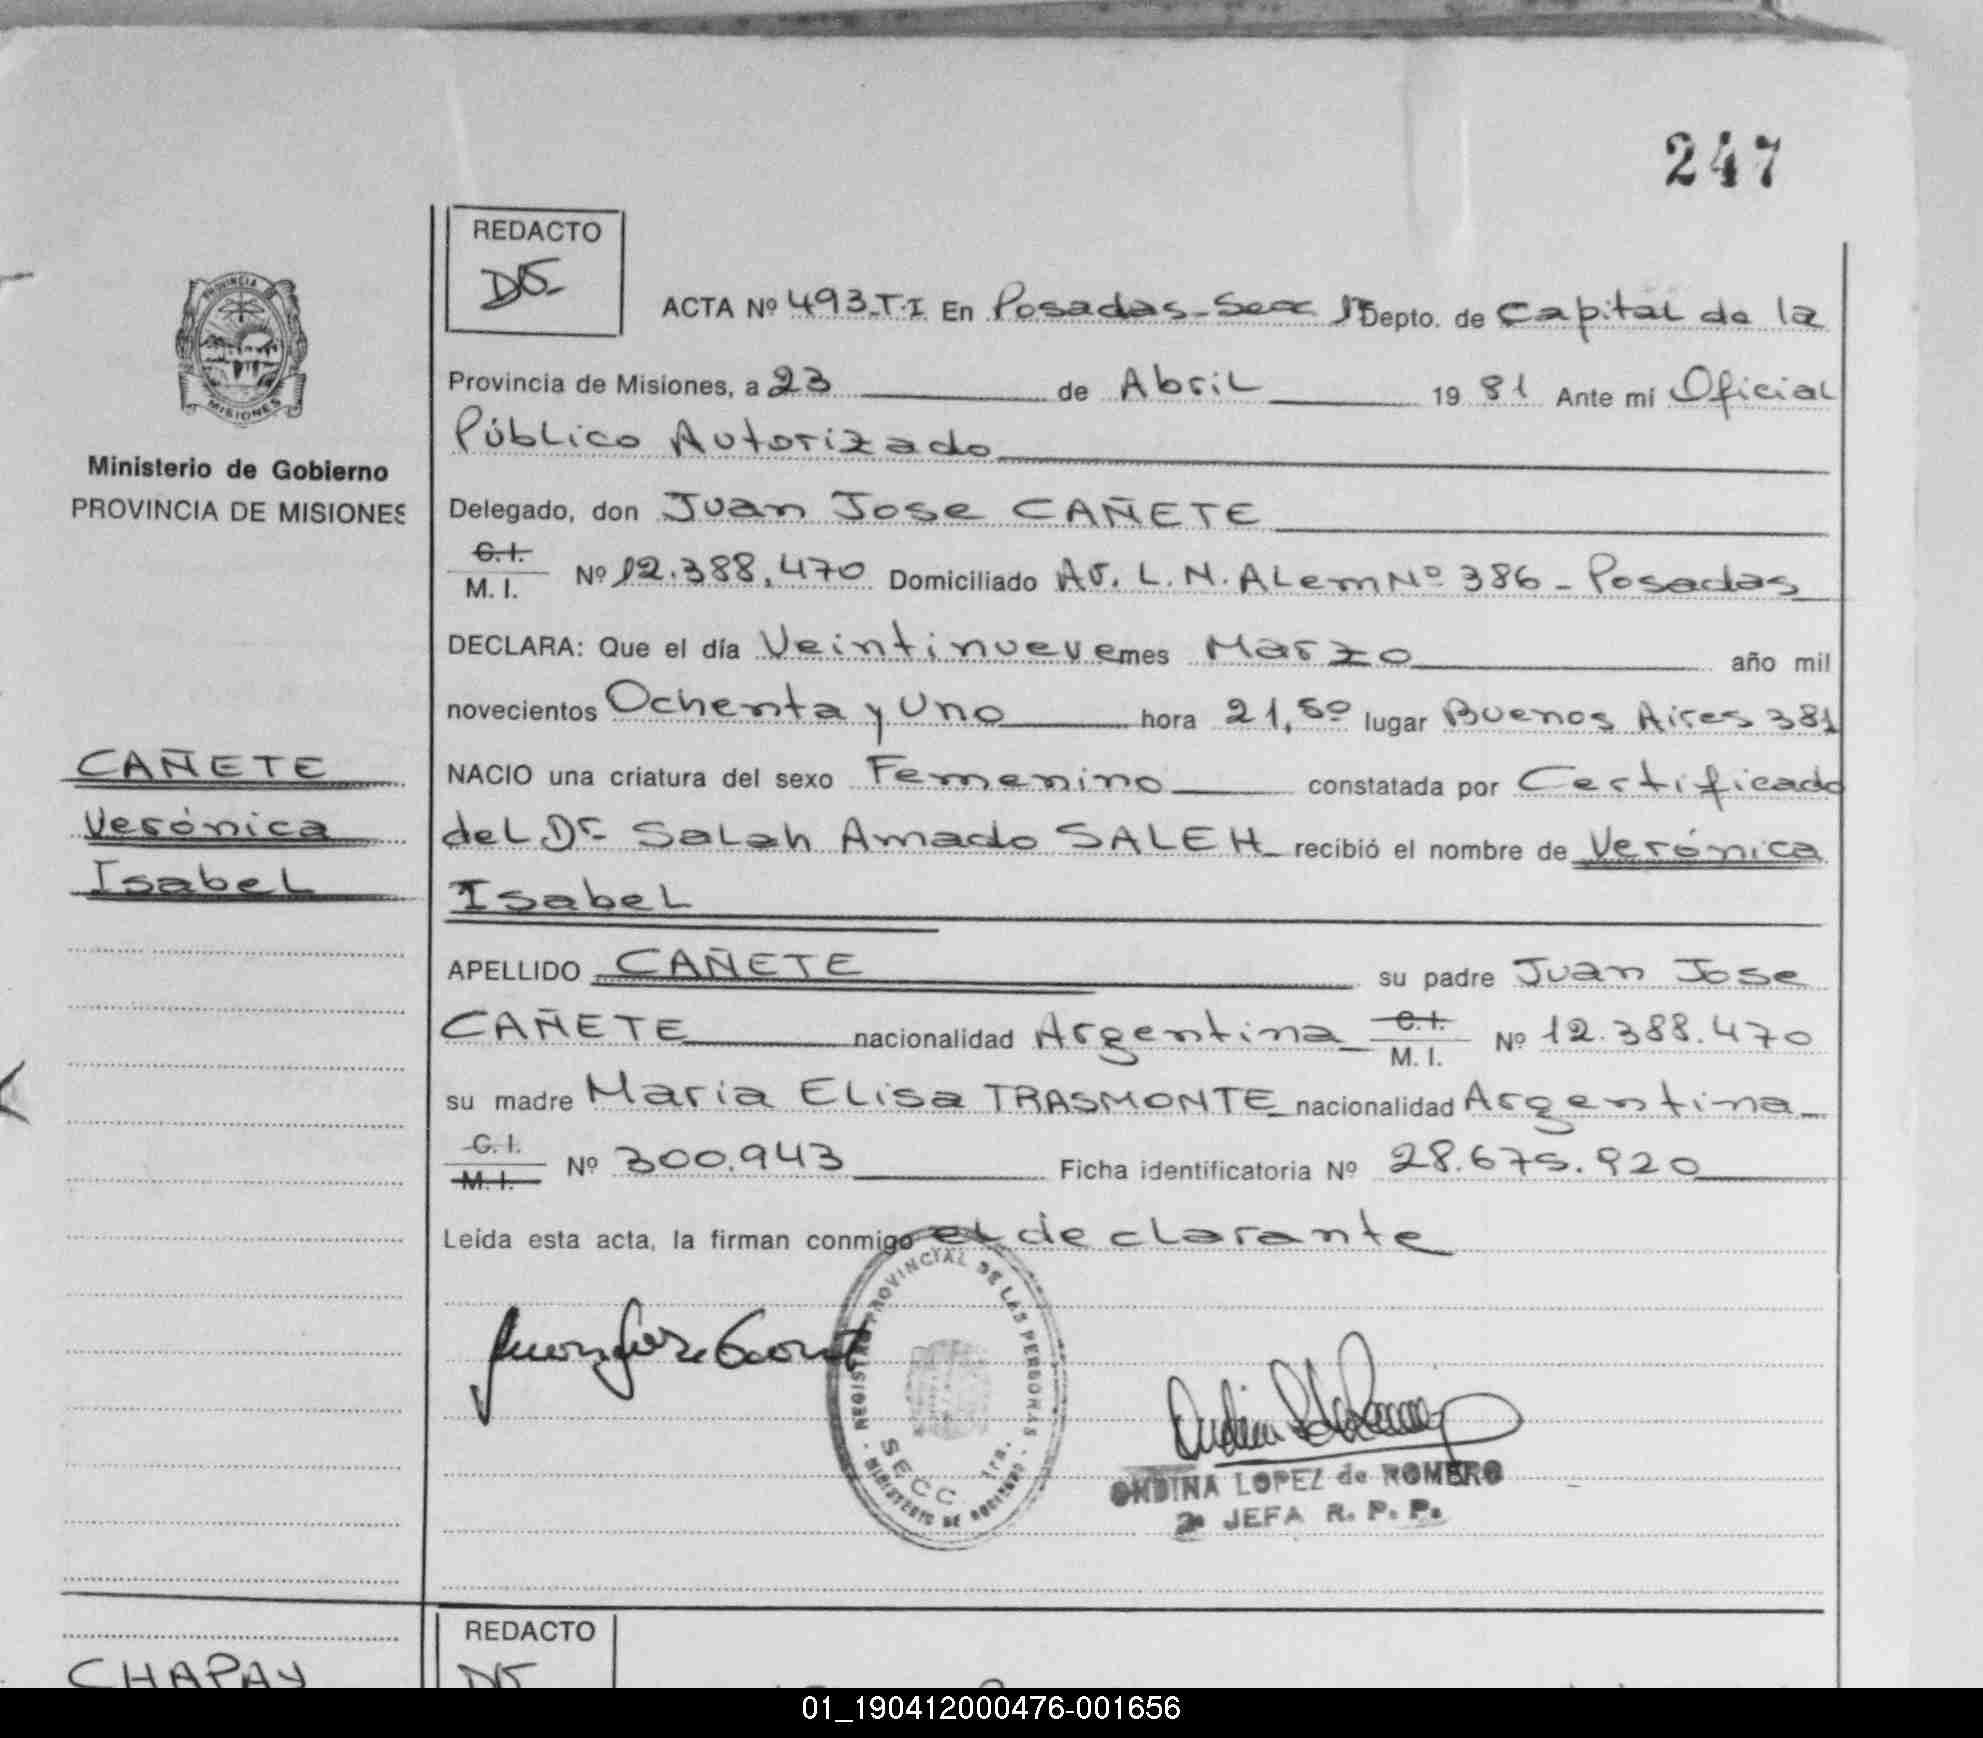 247
REDACTO
DS-
ACTA Nº 493_T.I En Posadas_Secc 1ª Depto. de Capital de la
Provincia de Misiones, a 23 de Abril 19 81 Ante mí Oficial
Público Autorizado
Ministerio de Gobierno
PROVINCIA DE MISIONES
Delegado, don Juan Jose CAÑETE
C.I.
M. I. Nº 12.388.470 Domiciliado Av. L. N. ALem Nº 386 - Posadas
DECLARA: Que el día Veintinueve mes Marzo año mil
novecientos Ochenta y Uno hora 21,50 lugar Buenos Aires 381
NACIO una criatura del sexo Femenino constatada por Certificado
del Dr Salah Amado SALEH recibió el nombre de Verónica
Isabel
CAÑETE
Verónica
Isabel
APELLIDO CAÑETE su padre Juan Jose
CAÑETE nacionalidad Argentina C.I. M. I. Nº 12.388.470
su madre Maria Elisa TRASMONTE nacionalidad Argentina
C.I.
M.I. Nº 300.943 Ficha identificatoria Nº 28.675.920
Leída esta acta, la firman conmigo el declarante
REGISTRO PROVINCIAL DE LAS PERSONAS
MINISTERIO DE GOBIERNO
SECC 1ra.
ONDINA LOPEZ de ROMERO
JEFA R. P. P.
REDACTO
CHAPAY
01_190412000476-001656